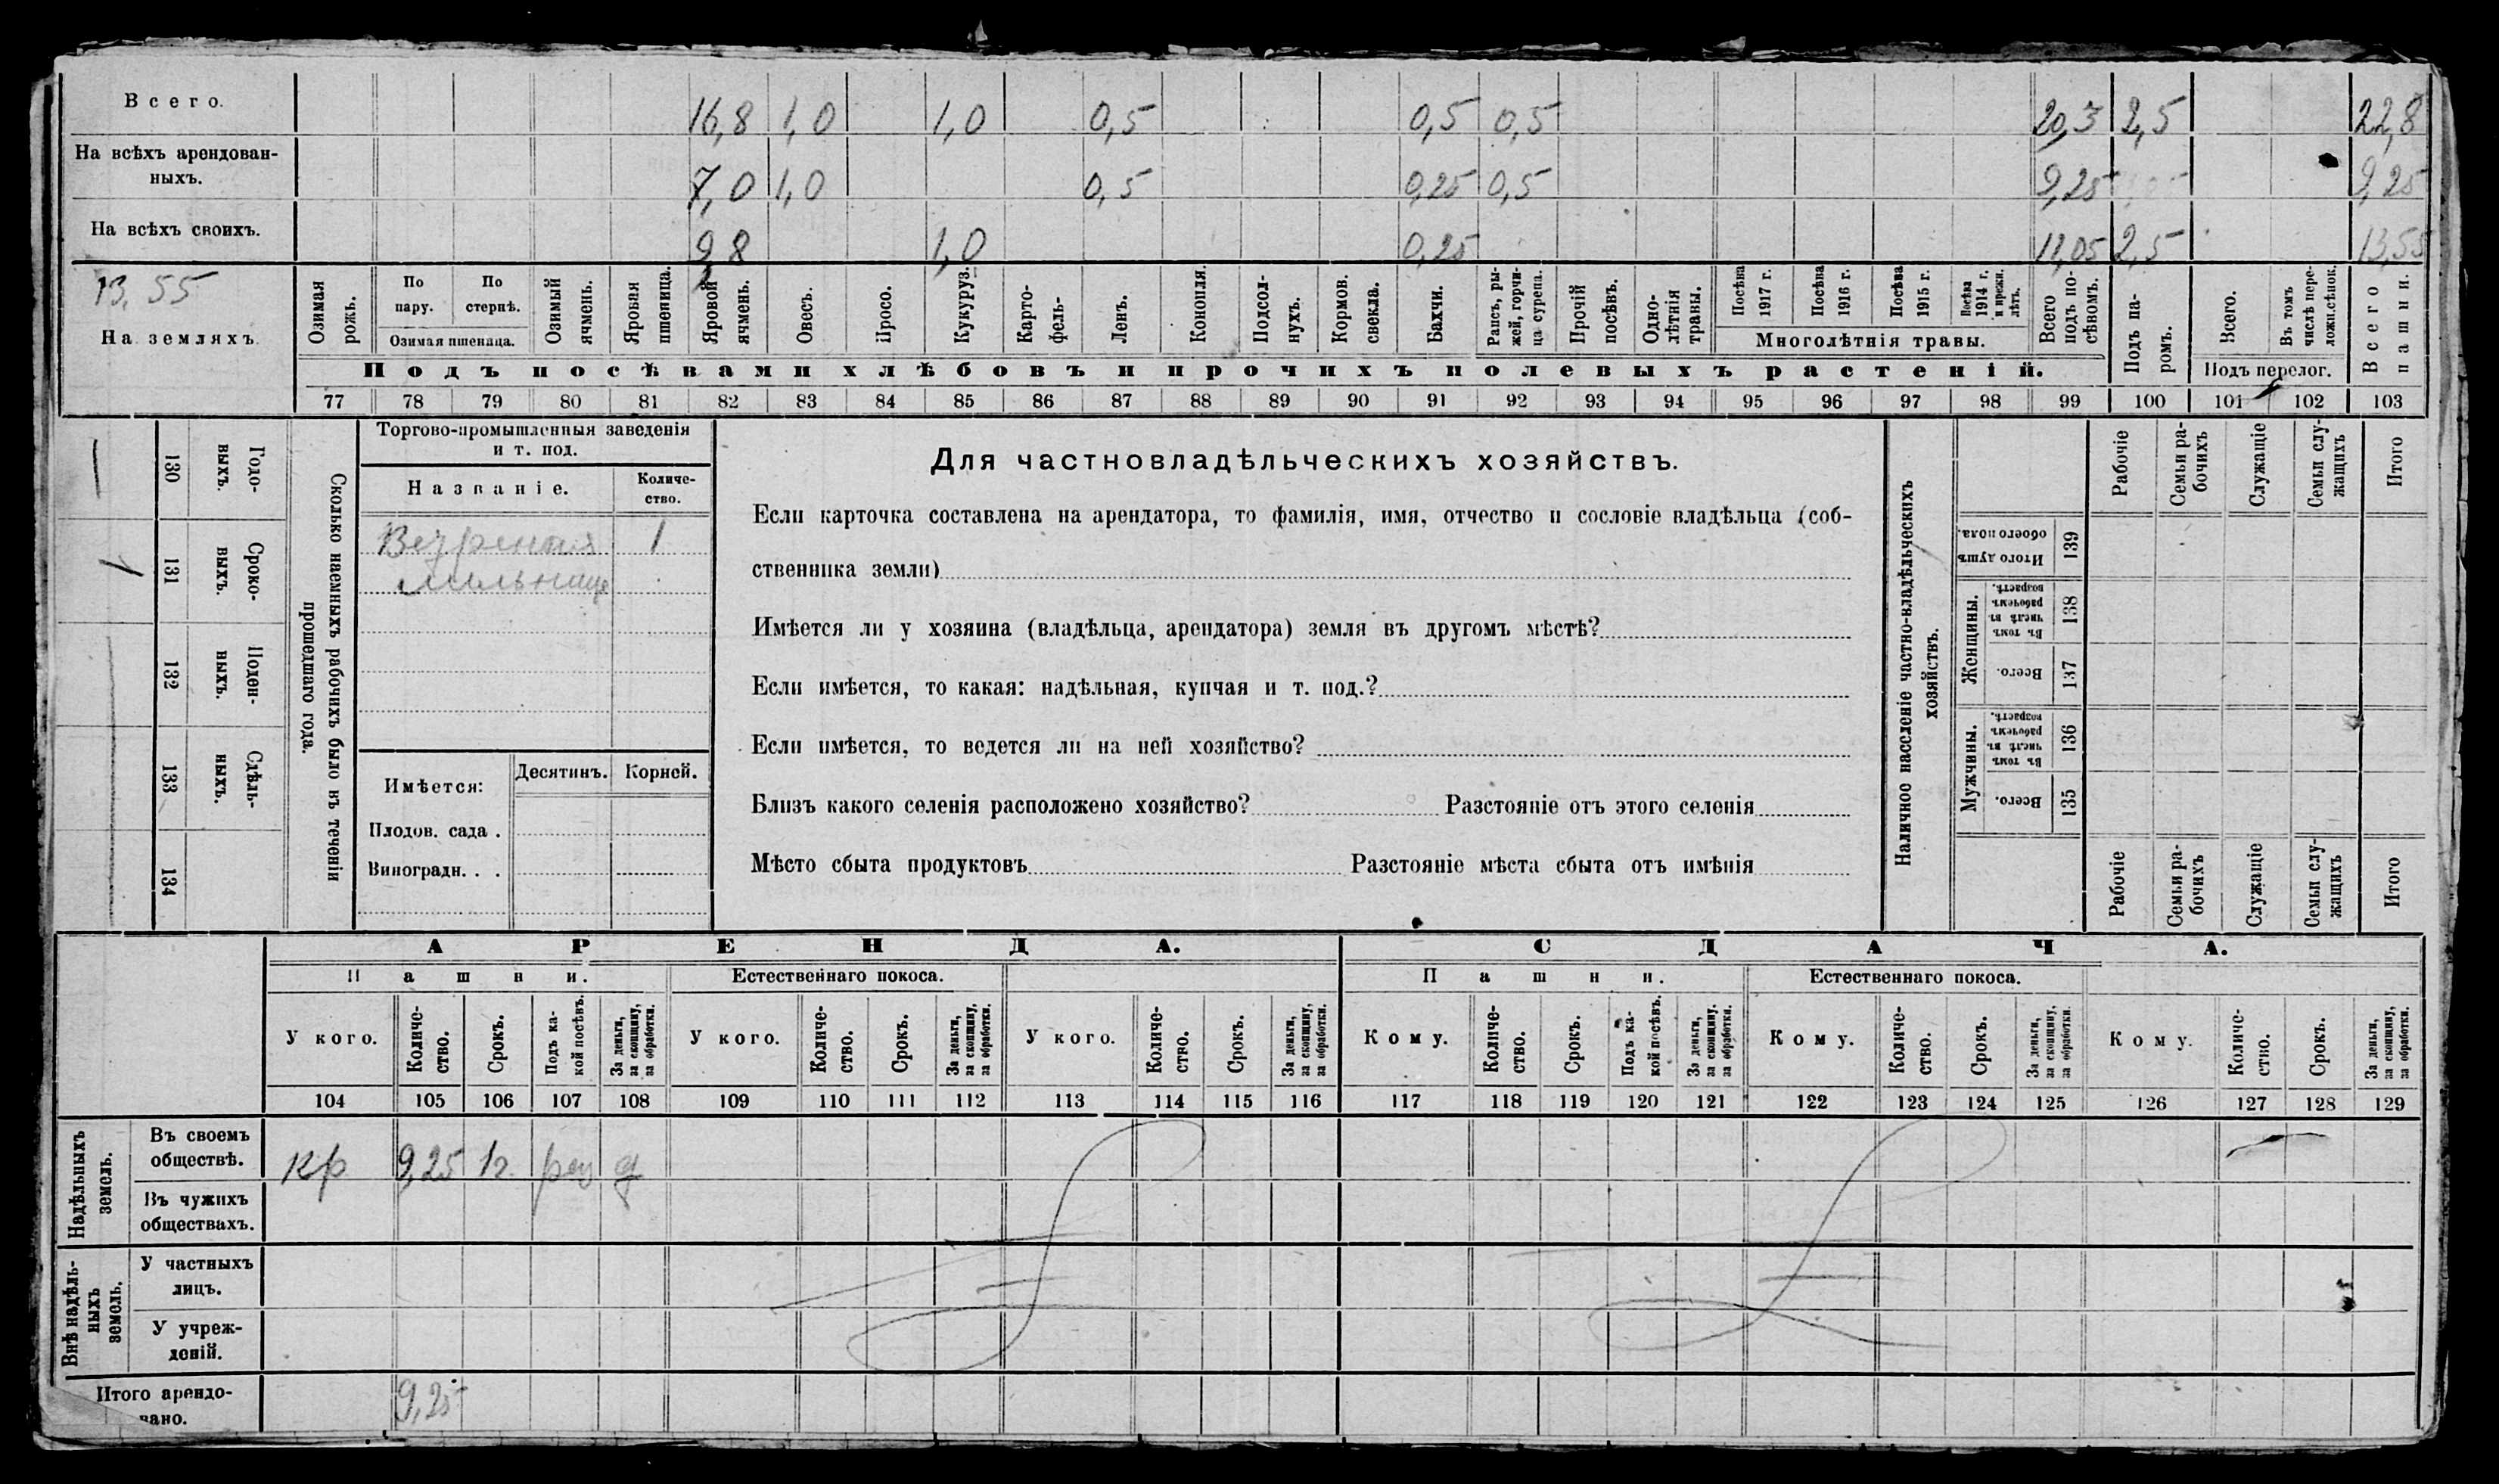 Всего. 16,8 1,0 1,0 0,5 0,5 0,5 20,3 2,5 22,8
На всѣхъ арендован-
ныхъ. 7,0 1,0 0,5 0,25 0,5 9,25 9,25
На всѣхъ своихъ. 9,8 1,0 0,25 11,05 2,5 13,55
13,55
На земляхъ
Озимая рожь.
По пару.
По стернѣ.
Озимая пшеница.
Озимый ячмень.
Яровая пшеница.
Яровой ячмень.
Овесъ.
Просо.
Кукуруз.
Карто-
фель-
Ленъ.
Конопля.
Подсол-
нухъ.
Кормов. свекла.
Бахчи.
Рапсъ, ры-
жей, горчи-
ца сурепа.
Прочій посѣвъ.
Одно-
лѣтнія травы.
Посѣва 1917 г.
Посѣва 1916 г.
Посѣва 1915 г.
Посѣва 1914 г. и прежн. лѣтъ.
Многолѣтнія травы.
Всего подъ по-
сѣвомъ.
Подъ па-
ромъ.
Всего.
Въ томъ числѣ пере-
ложн. сѣнок.
Подъ перелог.
Всего пашни.
Подъ посѣвами хлѣбовъ и прочихъ полевыхъ растеній.
77 78 79 80 81 82 83 84 85 86 87 88 89 90 91 92 93 94 95 96 97 98 99 100 101 102 103
130 Годо-
выхъ.
1 131 Сроко-
выхъ.
132 Поден-
ныхъ.
133 Сдѣль-
ныхъ.
134
Сколько наемныхъ рабочихъ было въ теченіи
прошедшаго года.
Торгово-промышленныя заведенія
и т. под.
Названіе. Количе-
ство.
Ветреная 1
мельница
Имѣется: Десятинъ. Корней.
Плодов. сада .
Виноградн. . .
Для частновладѣльческихъ хозяйствъ.
Если карточка составлена на арендатора, то фамилія, имя, отчество и сословіе владѣльца (соб-
ственника земли)
Имѣется ли у хозяина (владѣльца, арендатора) земля въ другомъ мѣстѣ?
Если имѣется, то какая: надѣльная, купчая и т. под.?
Если имѣется, то ведется ли на ней хозяйство?
Близъ какого селенія расположено хозяйство? Разстояніе отъ этого селенія
Мѣсто сбыта продуктовъ Разстояніе мѣста сбыта отъ имѣнія
Наличное населеніе частно-владѣльческихъ
хозяйствъ.
Рабочіе
Семьи ра-
бочихъ
Служащіе
Семьи слу-
жащихъ
Итого
Итого душъ обоего пола. 139
Женщины.
Въ томъ числѣ въ рабочемъ возрастѣ. 138
Всего. 137
Мужчины.
Въ томъ числѣ въ рабочемъ возрастѣ. 136
Всего. 135
Рабочіе
Семьи ра-
бочихъ
Служащіе
Семьи слу-
жащихъ
Итого
АРЕНДА. СДАЧА.
Пашни. Естественнаго покоса. Пашни. Естественнаго покоса.
У кого.
Количе-
ство.
Срокъ.
Подъ ка-
кой посѣвъ.
За деньги,
за скопщину,
за обработки.
У кого.
Количе-
ство.
Срокъ.
За деньги,
за скопщину,
за обработки.
У кого.
Количе-
ство.
Срокъ.
За деньги,
за скопщину,
за обработки.
Кому.
Количе-
ство.
Срокъ.
Подъ ка-
кой посѣвъ.
За деньги,
за скопщину.
за обработки.
Кому.
Количе-
ство.
Срокъ.
За деньги,
за скопщину,
за обработки.
Кому.
Количе-
ство.
Срокъ.
За деньги,
за скопщину,
за обработки.
104 105 106 107 108 109 110 111 112 113 114 115 116 117 118 119 120 121 122 123 124 125 126 127 128 129
Надѣльныхъ
земель.
Въ своемъ
обществѣ. кр 9,25 1г.
Въ чужихъ
обществахъ.
Внѣ надѣль-
ныхъ
земель.
У частныхъ
лицъ.
У учреж-
деній.
Итого арендо-
вано. 9,25